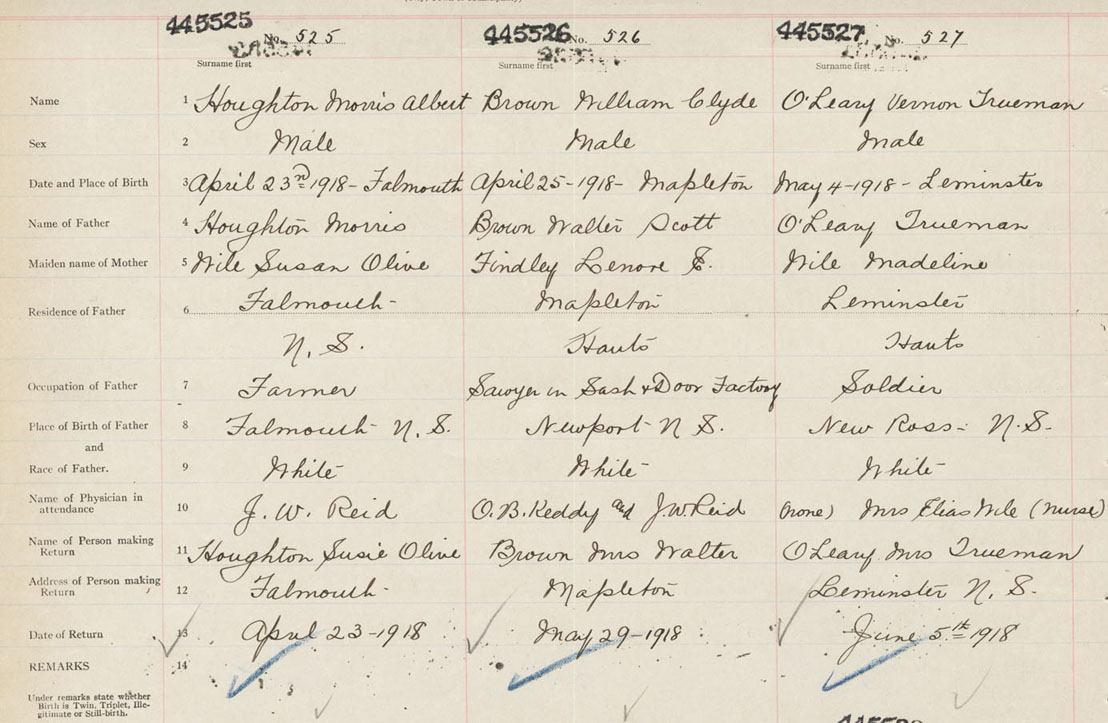 445525 445526 445527
No. 525 No. 526 No. 527
Surname first Surname first Surname first
Name 1 Houghton Morris Albert Brown William Clyde O'Leary Vernon Trueman
Sex 2 Male Male Male
Date and Place of Birth 3 April 23rd 1918 - Falmouth April 25 - 1918 - Mapleton May 4 - 1918 - Leminster
Name of Father 4 Houghton Morris Brown Walter Scott O'Leary Trueman
Maiden name of Mother 5 Wile Susan Olive Findley Lenore E. Wile Madeline
Residence of Father 6 Falmouth Mapleton Leminster
N. S. Hants Hants
Occupation of Father 7 Farmer Sawyer in Sash & Door Factory Soldier
Place of Birth of Father 8 Falmouth N. S. Newport N S. New Ross - N. S.
and
Race of Father. 9 White White White
Name of Physician in
attendance 10 J. W. Reid O. B. Keddy and J W Reid (none) Mrs Elias Wile (Nurse)
Name of Person making
Return 11 Houghton Susie Olive Brown Mrs Walter O'Leary Mrs Trueman
Address of Person making
Return 12 Falmouth Mapleton Leminster N. S.
Date of Return 13 April 23 - 1918 May 29 - 1918 June 5th 1918
REMARKS 14
Under remarks state whether
Birth is Twin, Triplet, Ille-
gitimate or Still-birth.